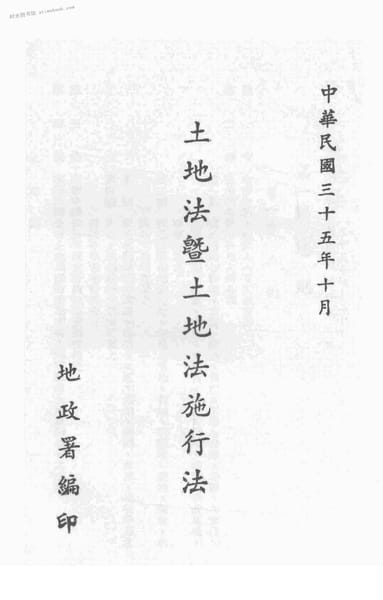 中華民國三十五年十月
土地法暨土地法施行法
地政署編印